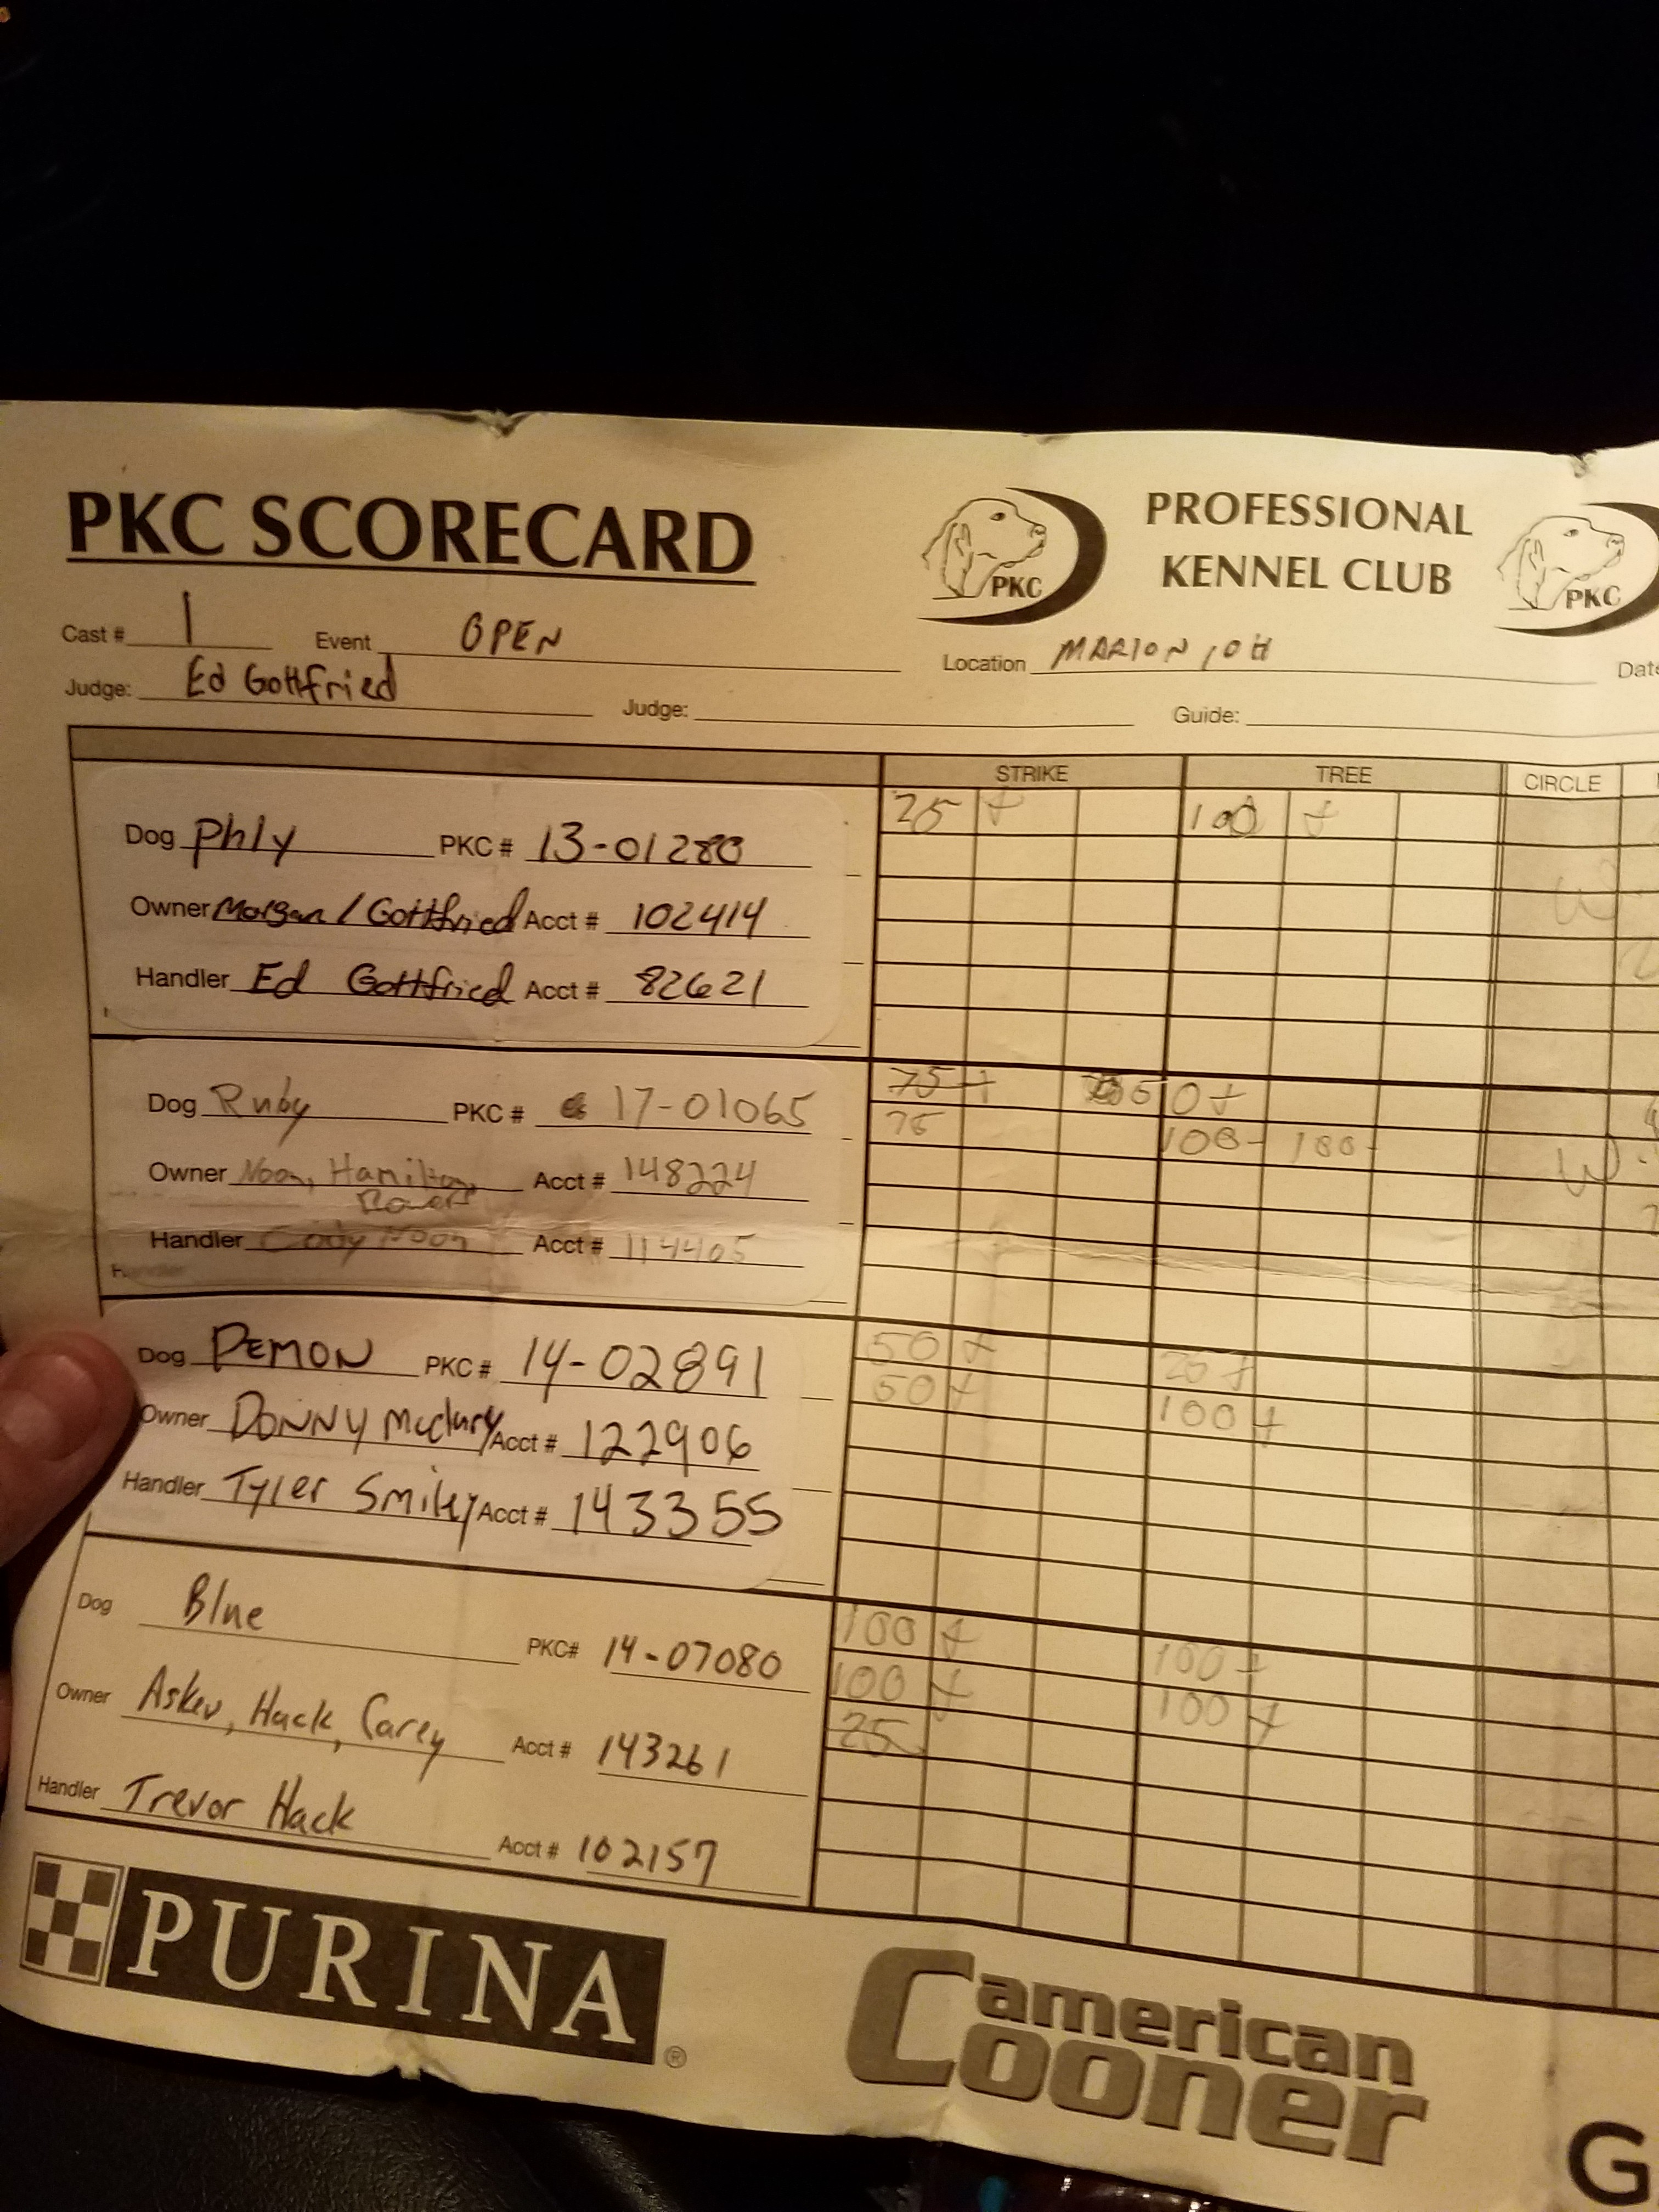 PKC SCORECARD
PKC
PROFESSIONAL
KENNEL CLUB
PKC
Cast # 1 Event OPEN Location MARION, OH Date
Judge: Ed Gottfried Judge: Guide:
STRIKE TREE CIRCLE
25 + 100 +
Dog Phly PKC # 13-01280
Owner Morgan / Gottfried Acct # 102414
Handler Ed Gottfried Acct # 82621
75 + 0 +
Dog Ruby PKC # 17-01065
75 100- 100-
Owner Noon, Hamilton, Acct # 148224
Handler Cody Noon Acct # 114405
50 + 25 +
Dog DEMON PKC # 14-02891
50 + 100 +
Owner DONNY Acct # 122906
Handler Tyler Smiley Acct # 143355
100 + 100 +
Dog Blue PKC# 14-07080
100 + 100 +
25
Owner Askew, Hack, Carey Acct # 143261
Handler Trevor Hack Acct # 102157
PURINA®
american
Cooner
G